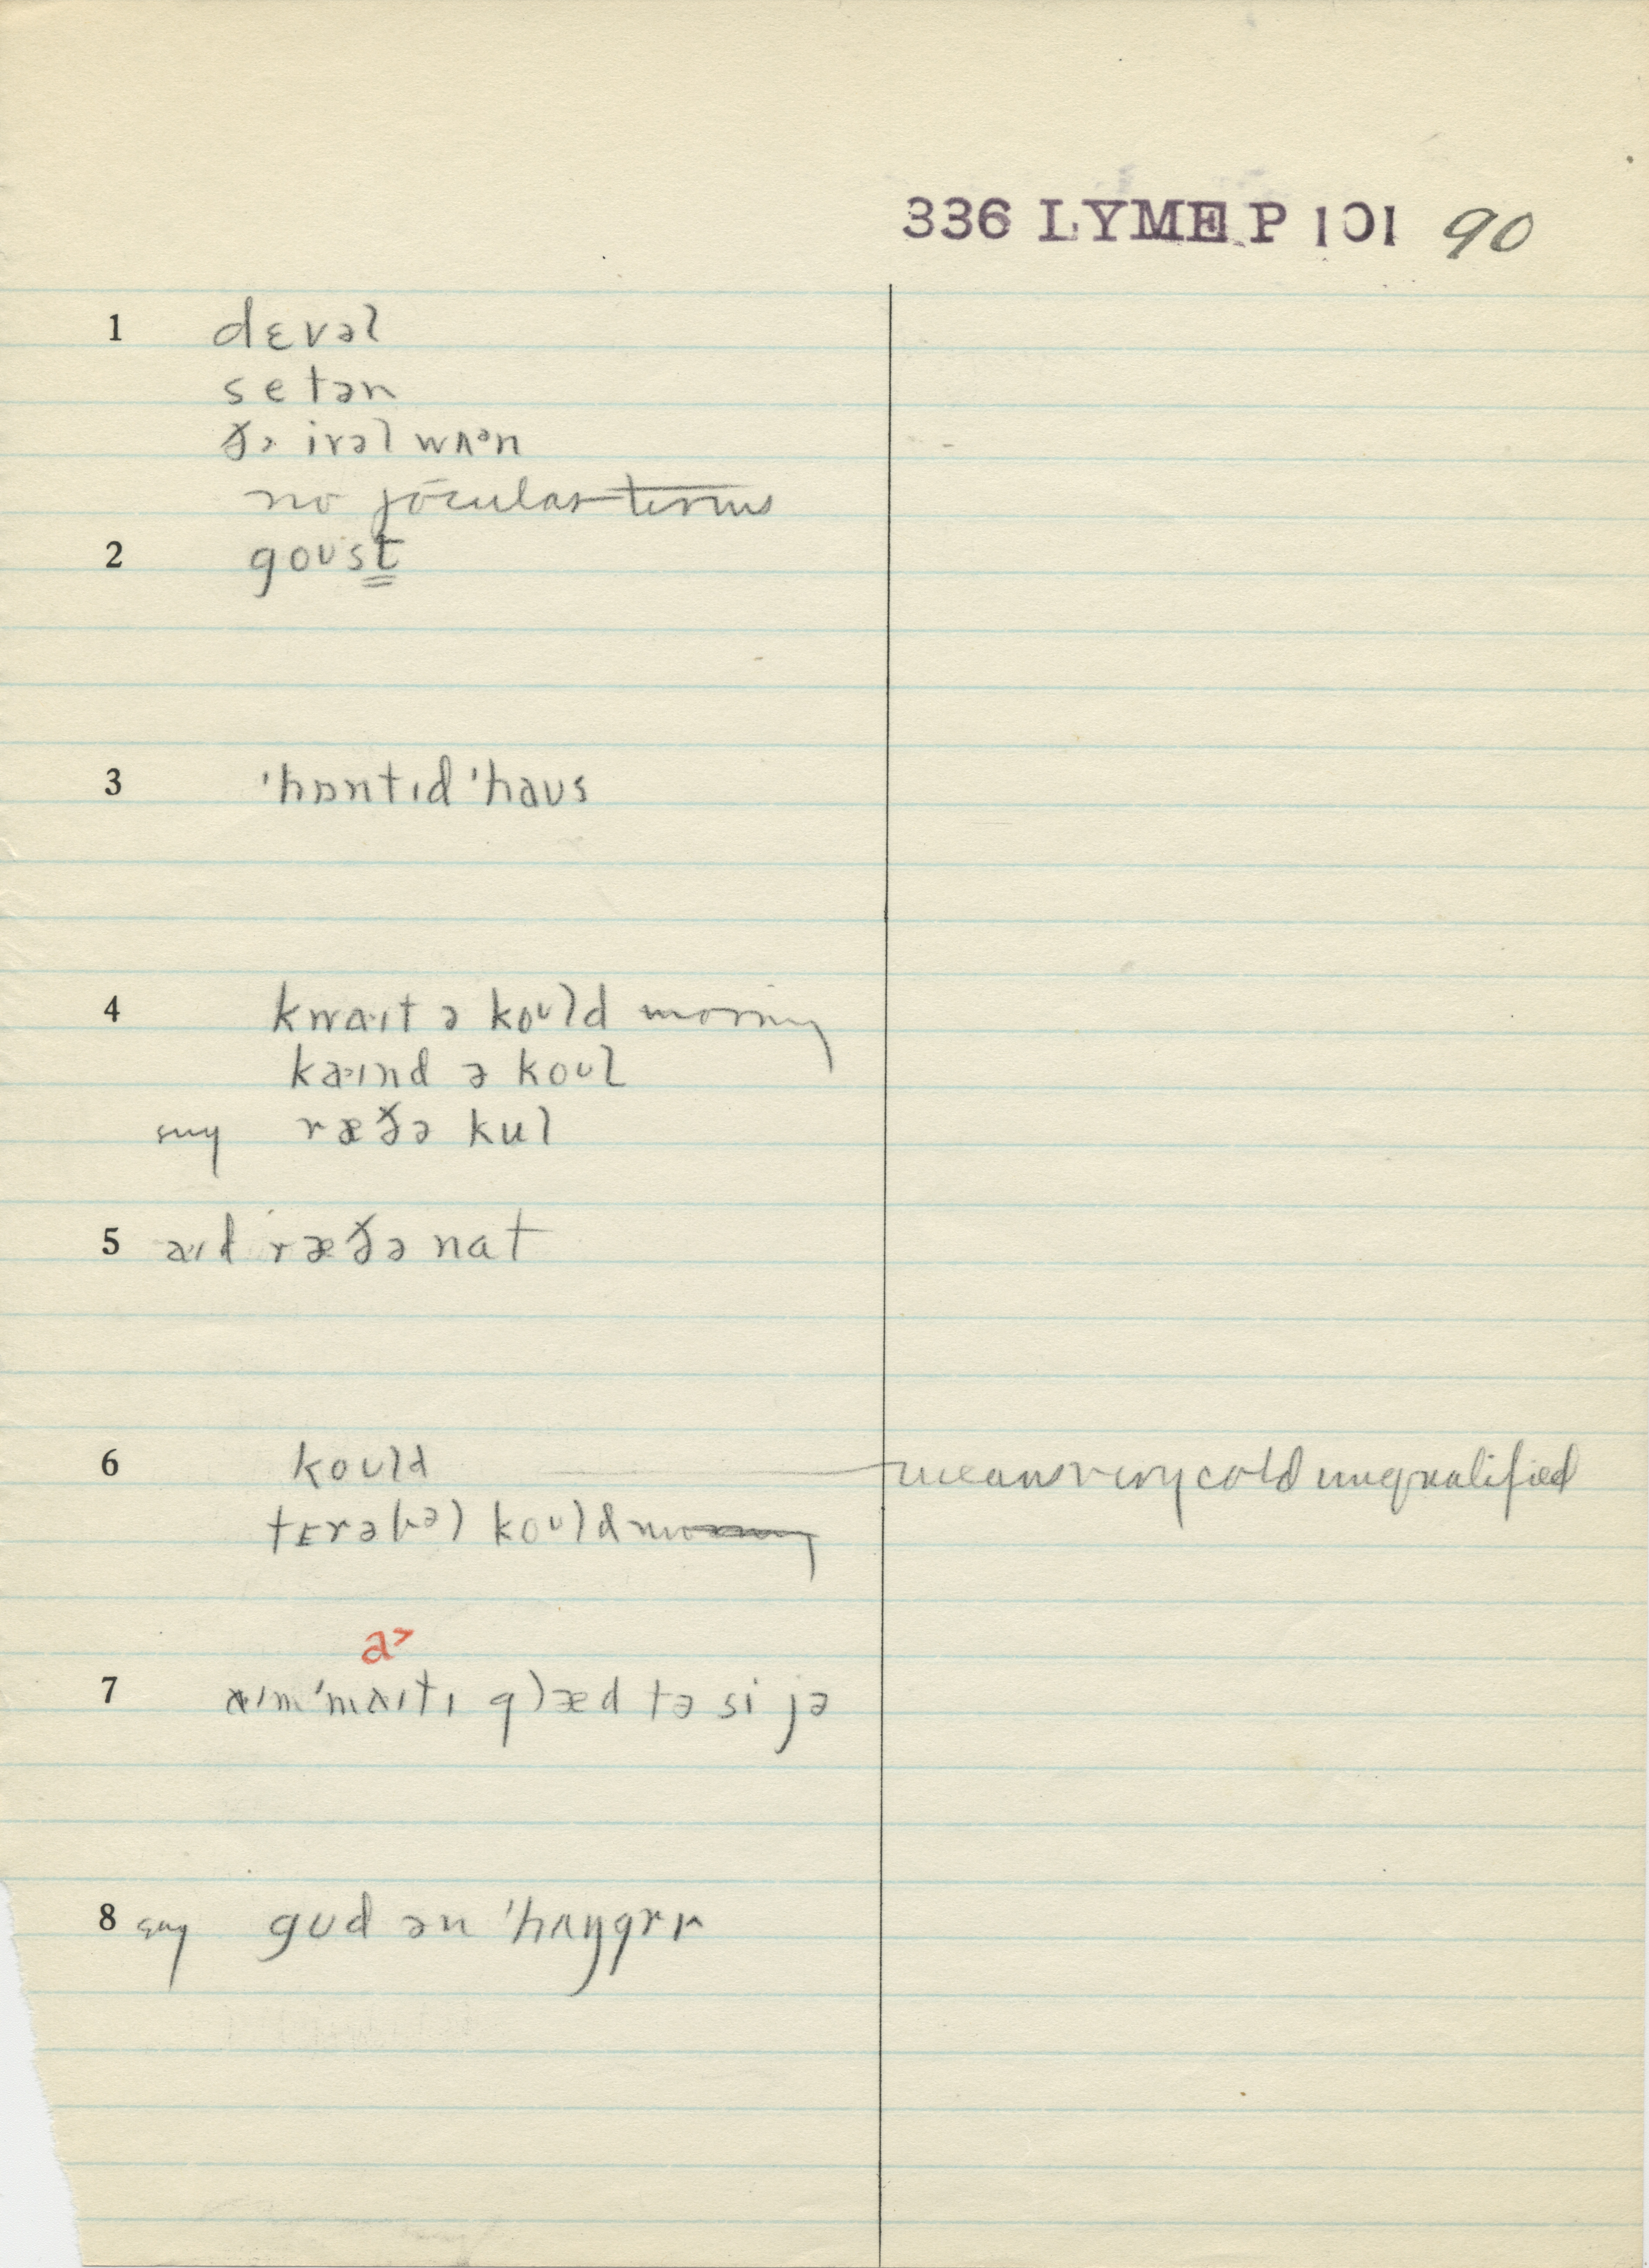 336 LYME P 101 90
1 dɛvəl
setən
ðə ivəl wʌᵊn
no jocular terms
2 goust
3 ˈhɒntɪd ˈhaus
4 kwa·ɪt ə koᵘld morning
ka·ɪnd ə koul
sug ræðə kul
5 a·ɪd ræðə nat
6 kould means very cold unqualified
tɛrəbəl koᵘld morning
a>
7 aɪm ˈmaɪtɪ glæd tə si jə
8 sug gud ən ˈhʌŋgrɪ